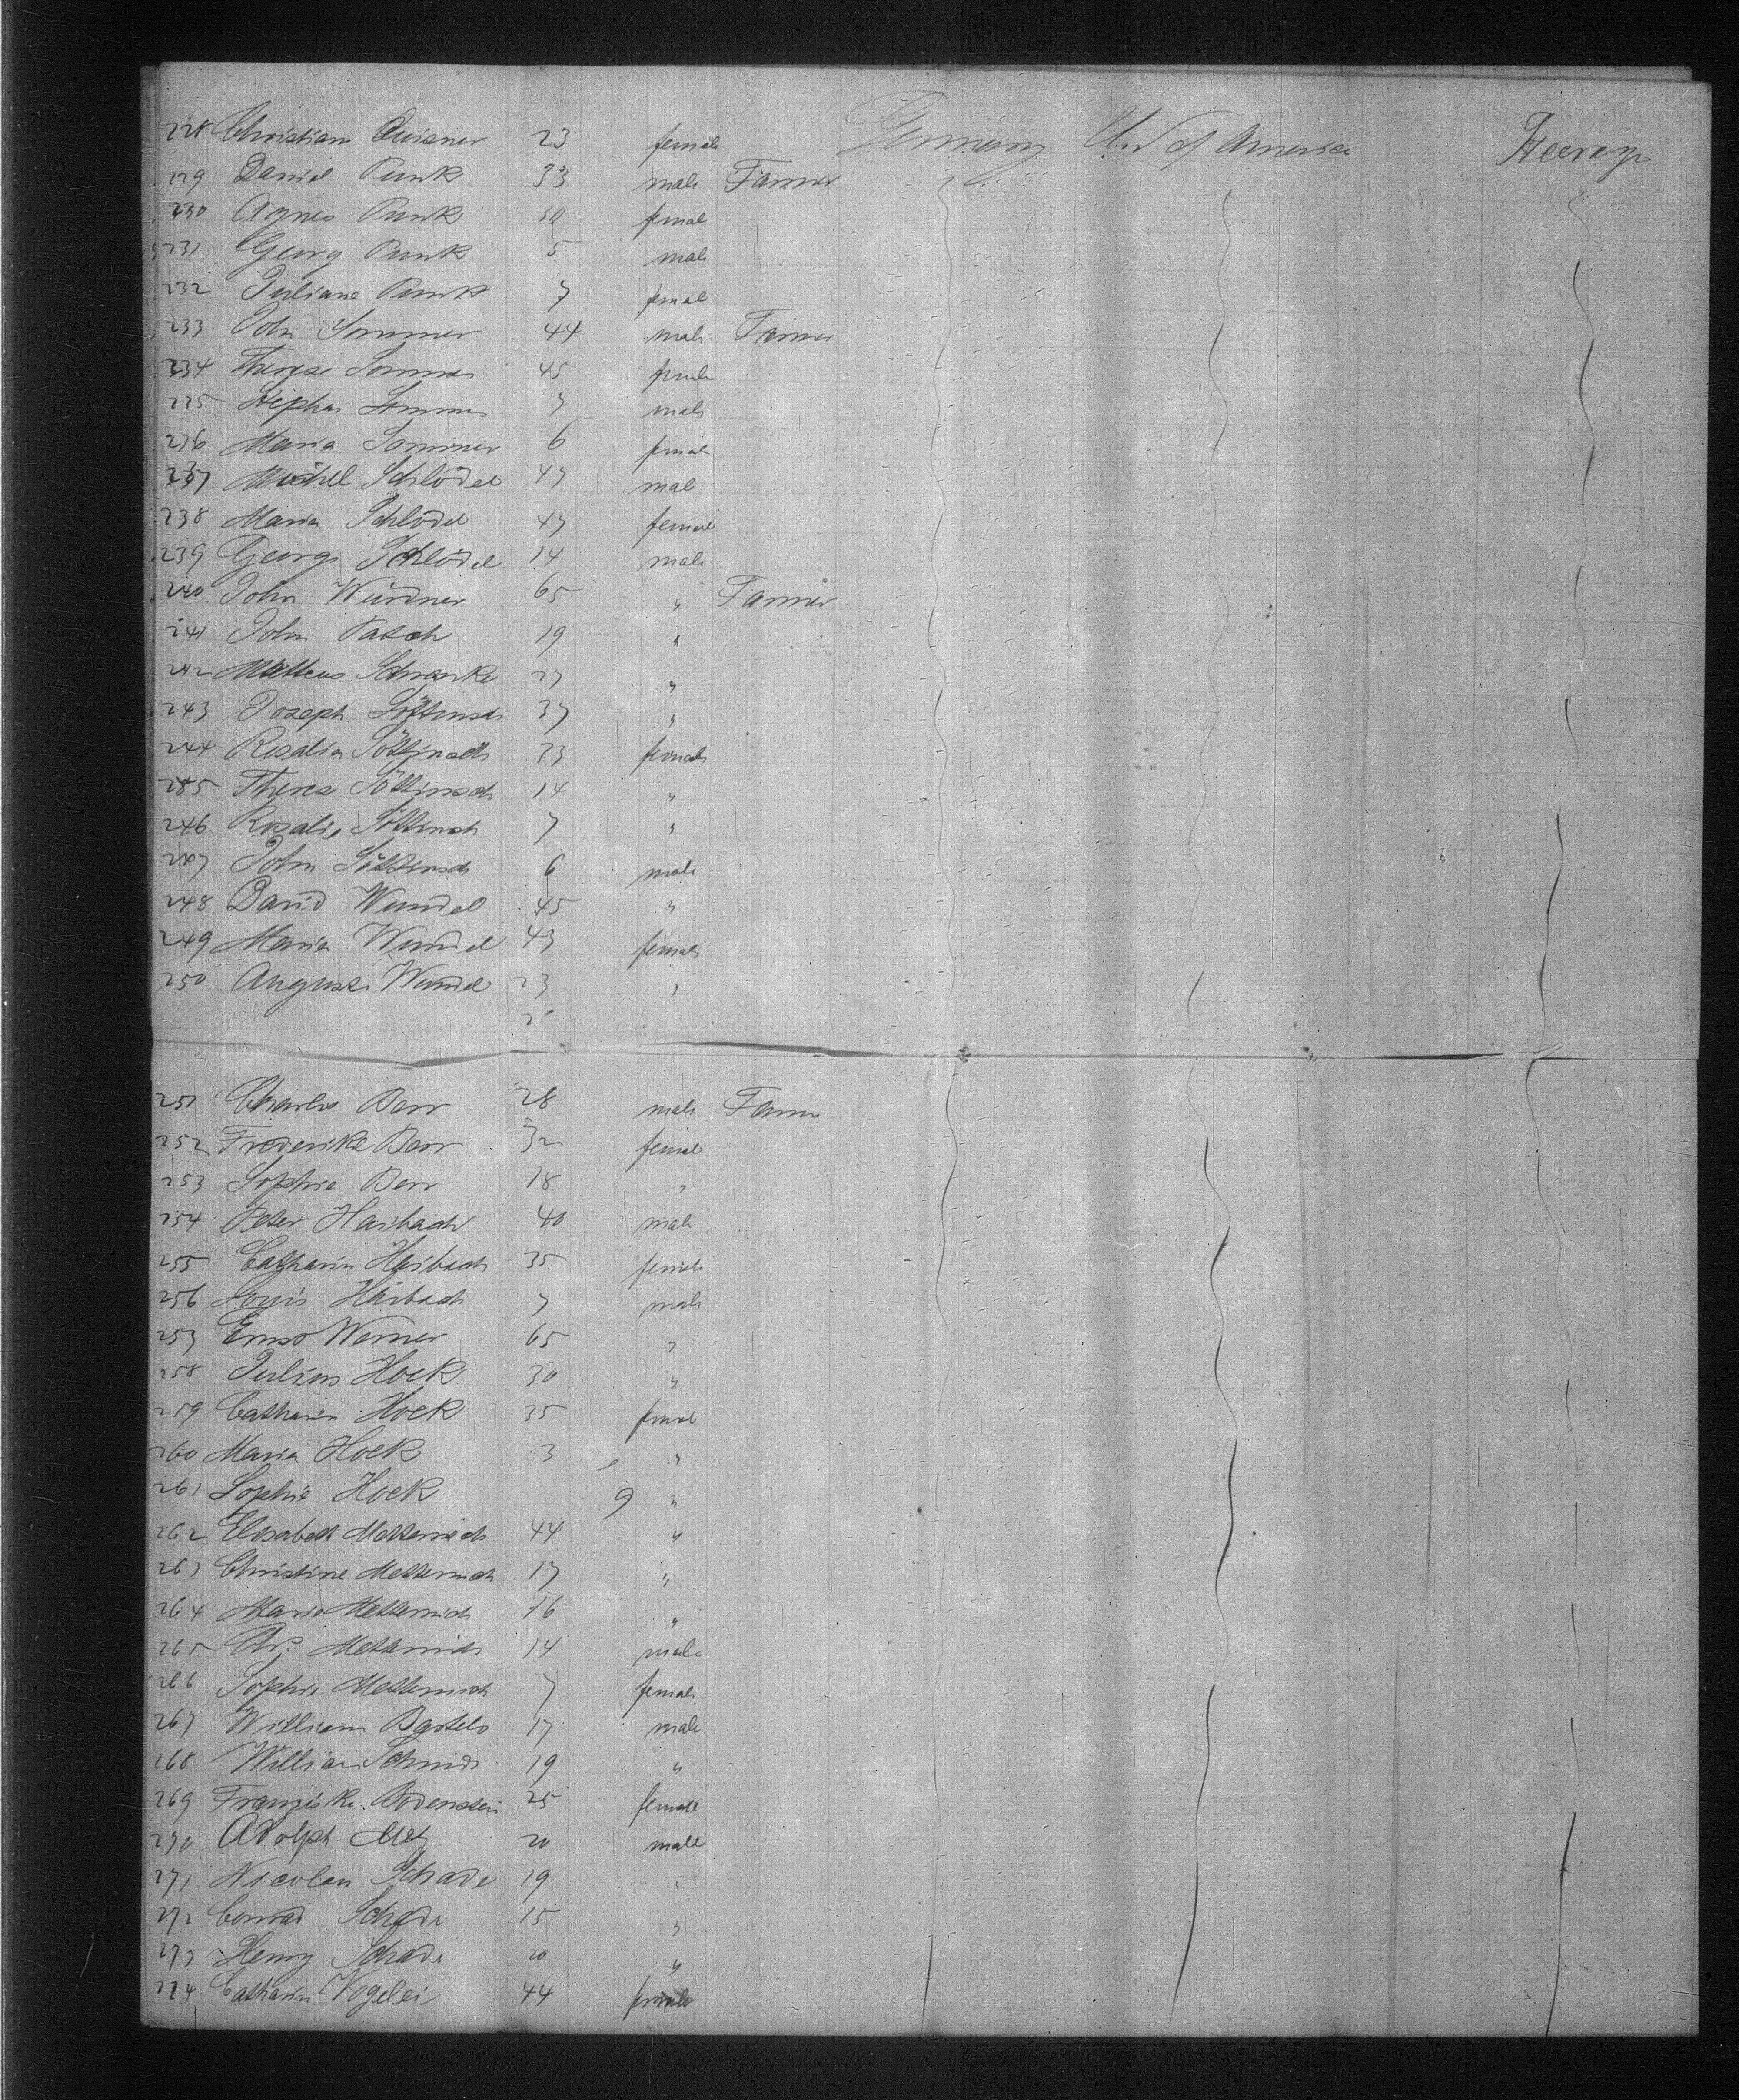 228 Christiann Quisner 23 female Germany U. S. of America Steerage
229 Daniel Punk 33 male Farmer
230 Agnes Punk 30 femal
231 Georg Punk 5 male
232 Juliane Punk 7 femal
233 John Sommer 44 male Farmer
234 Therese Sommer 45 female
235 Stephan Sommer 7 male
236 Maria Sommer 6 female
237 Michel Schlödel 47 mal
238 Maria Schlödel 47 female
239 Georg Schlödel 14 male
240 John Würdner 65 " Farmer
241 John Patsch 19 "
242 Matteus Schranke 27 "
243 Joseph 37 "
244 Rosalia 33 female
285 Therese 14 "
246 Rosalie 7 "
247 John 6 male
248 David Wendel 45 "
249 Maria Wendel 43 female
250 August Wendel 23 "
2
251 Charles Berr 28 male Farm
252 Frederike Berr 32 femal
253 Sophie Berr 18 "
254 Peter Haibach 40 male
255 Catharin Haibach 35 female
256 Louis Haibach 7 male
257 Ernst Werner 65 "
258 Julius Hock 30 "
259 Catharin Hock 35 femal
260 Maria Hock 3 "
261 Sophie Hock 9 "
262 Elisabeth Metternich 44 "
263 Christine Metternich 17 "
264 Maria Metternich 16 "
265 Chr. Metternich 14 male
266 Sophie Metternich 7 female
267 William Bartels 17 male
268 William Schmidt 19 "
269 Franziska Bodenstein 25 female
270 Adolph Metz 20 male
271 Nicolaus Schade 19 "
272 Conrad Schade 15 "
273 Henry Schade 20 "
274 Catharin Vogelei 44 female